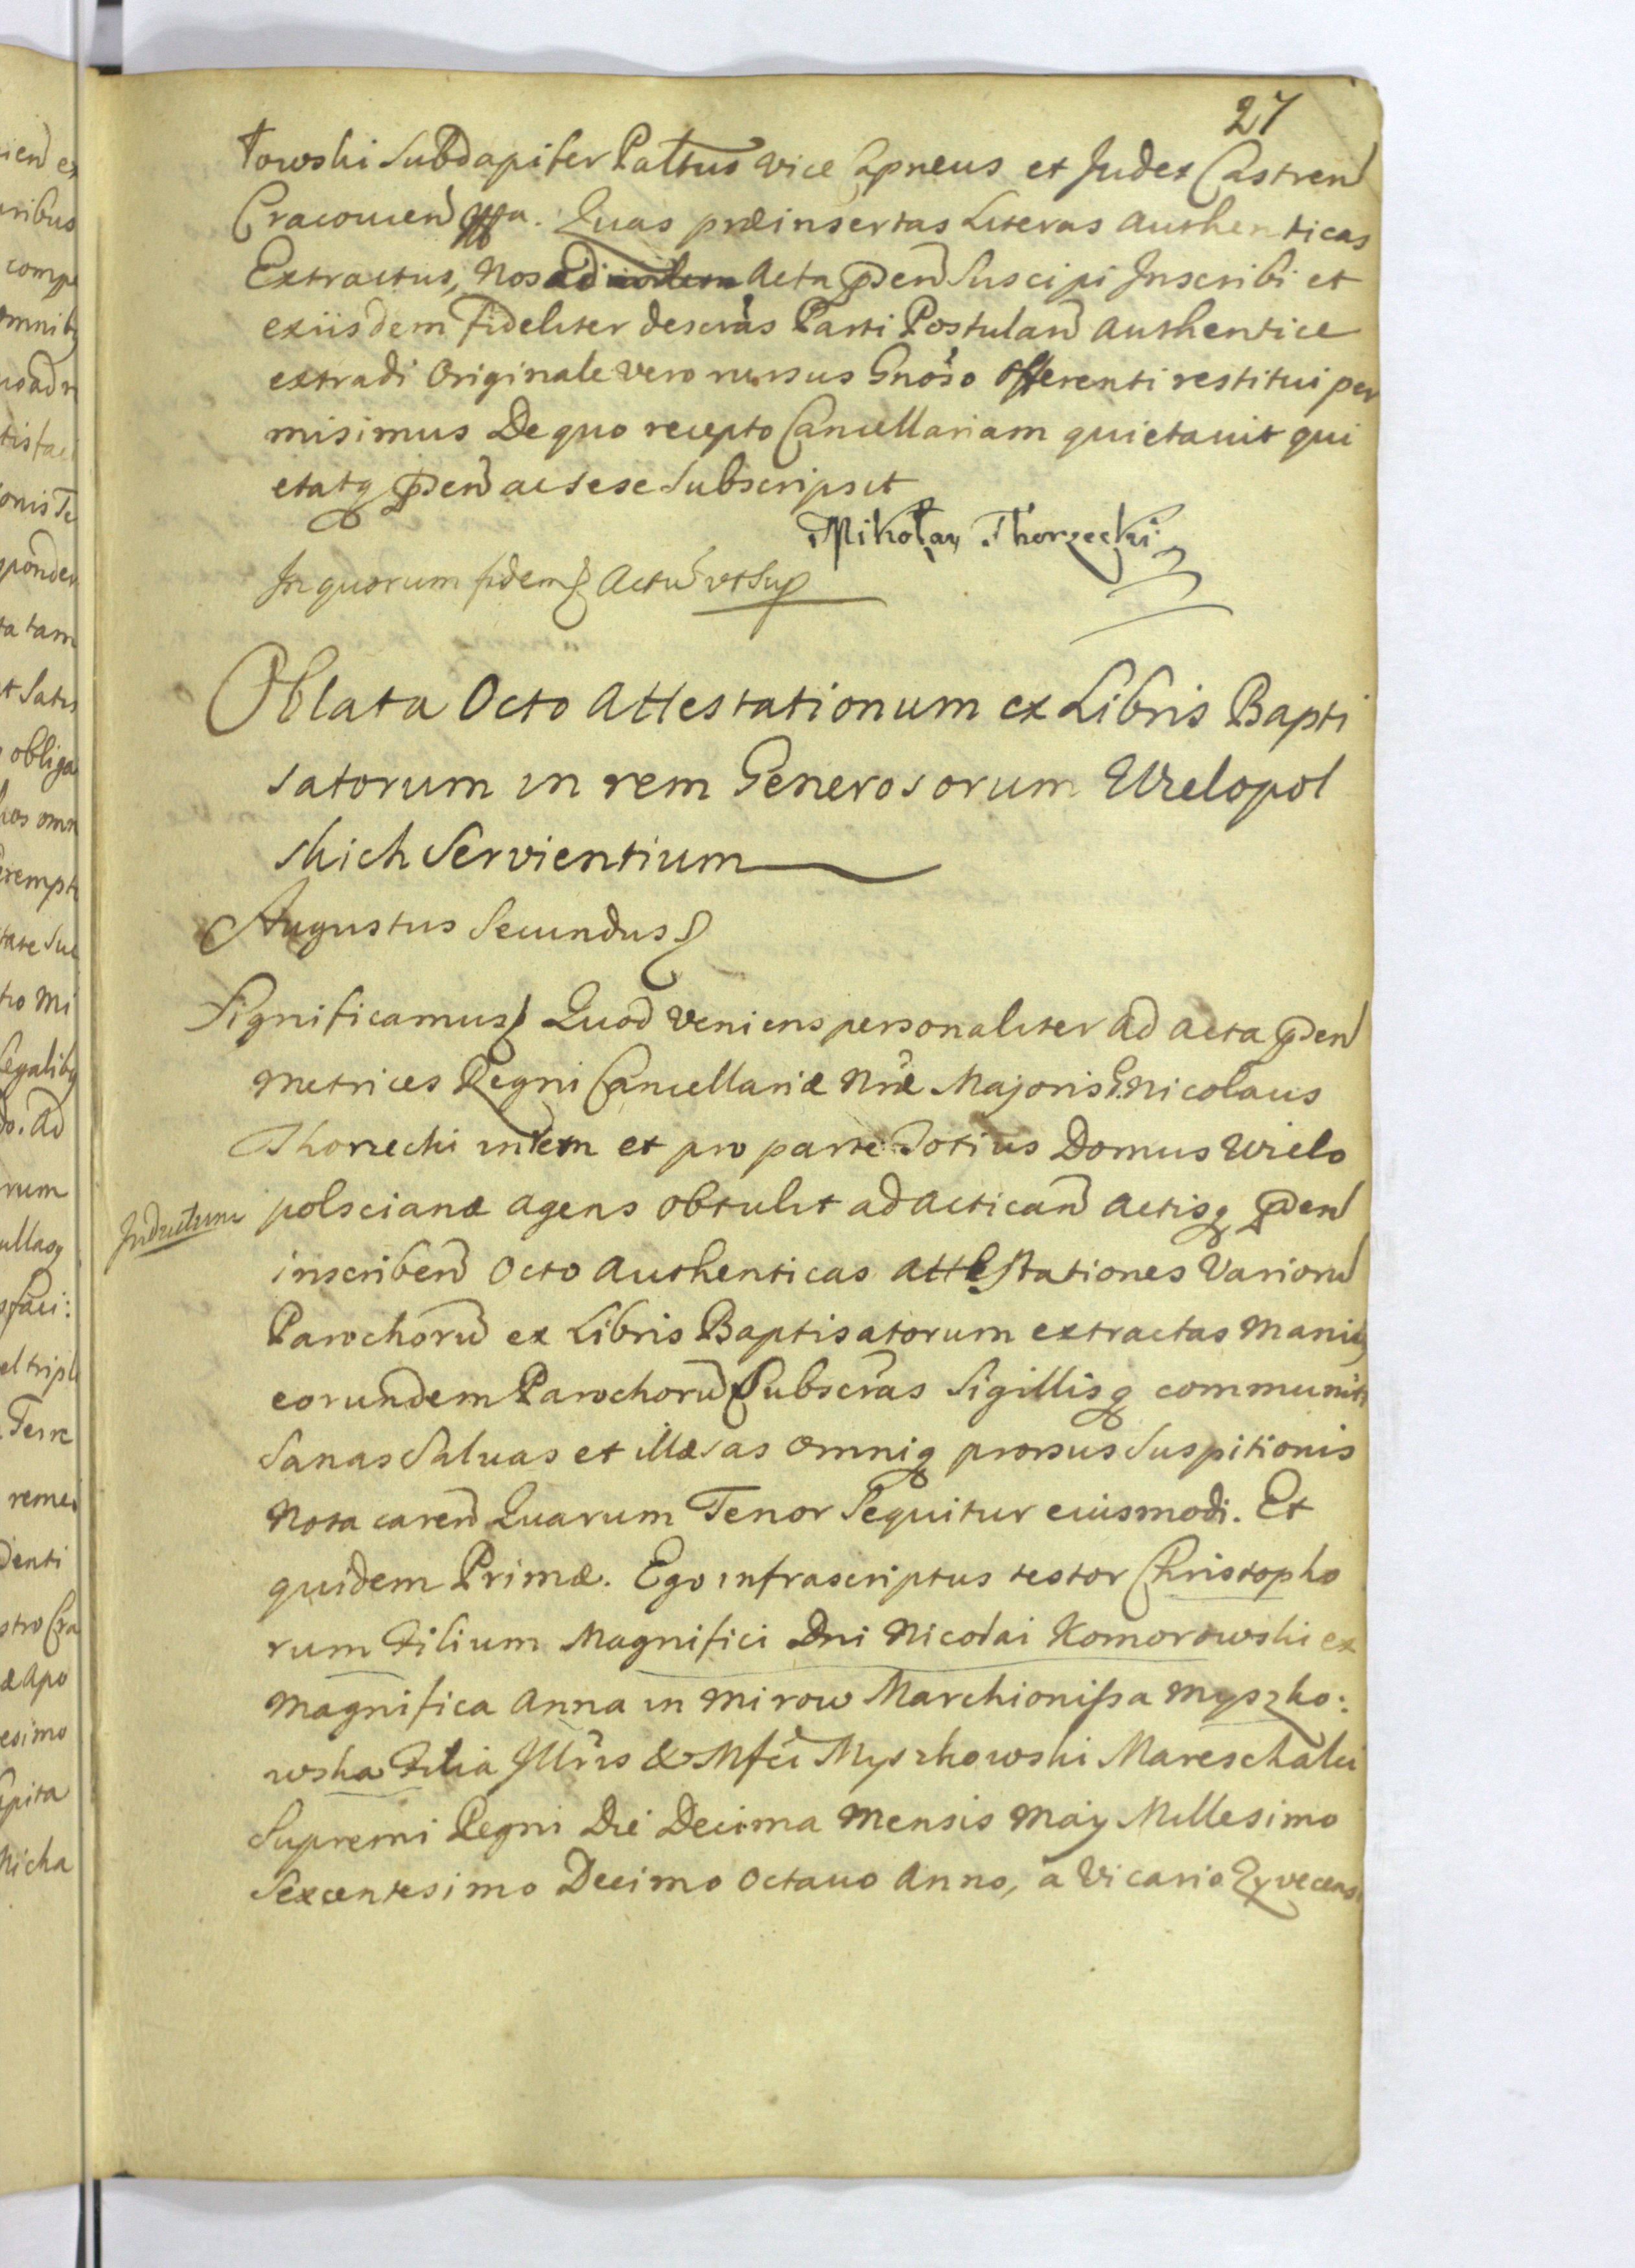 27
towski Subdapifer Palttus vice Capneus et Judex Castren
Cracovien mppa. Quas præinsertas Literas Authenticas
Extractus, Nos ad Acta pñden Suscipi Inscribi et
exiisdem fideliter descras Parti Postulan Authentice
extradi Originale vero rursus Gnoso Offerenti restitui per
misimus De quo recepto Cancellariam quietavit qui
etatq pñden ac sese Subscripsit
Mikołay Thorzecki
In quorum fidem Actũ ut Sup
Oblata Octo Attestationum ex Libris Bapti
satorum in rem Generosorum Wielopol
skich Servientium
Augustus Secundus
Significamus Quod veniens personaliter ad acta pñden
Metrices Regni Cancellariæ Nræ Majoris G. Nicolaus
Thorzecki et pro parte Totius Domus Wielo
Inductum
polscianæ agens obtulit ad acticañ actisq pñden
inscribeñ Octo Authenticas Attestationes Variorũ
Parochorũ ex Libris Baptisatorum extractas Manib
eorundem Parochorũ Subscras Sigillisq communit
Sanas Salvas et illæsas omniq prorsus Suspitionis
Nota careñ Quarum Tenor Sequitur eiusmodi. Et
quidem Primæ. Ego infrascriptus testor Christopho
rum Filium Magnifici Dni Nicolai Komorowski ex
Magnifica Anna in Mirow Marchionissa Myszko:
wska Filia Illris & Mfci Myszkowski Mareschalci
Supremi Regni Die Decima Mensis Maÿ Millesimo
Sexcentesimo Decimo Octavo Anno, a Vicario Zyvecensi